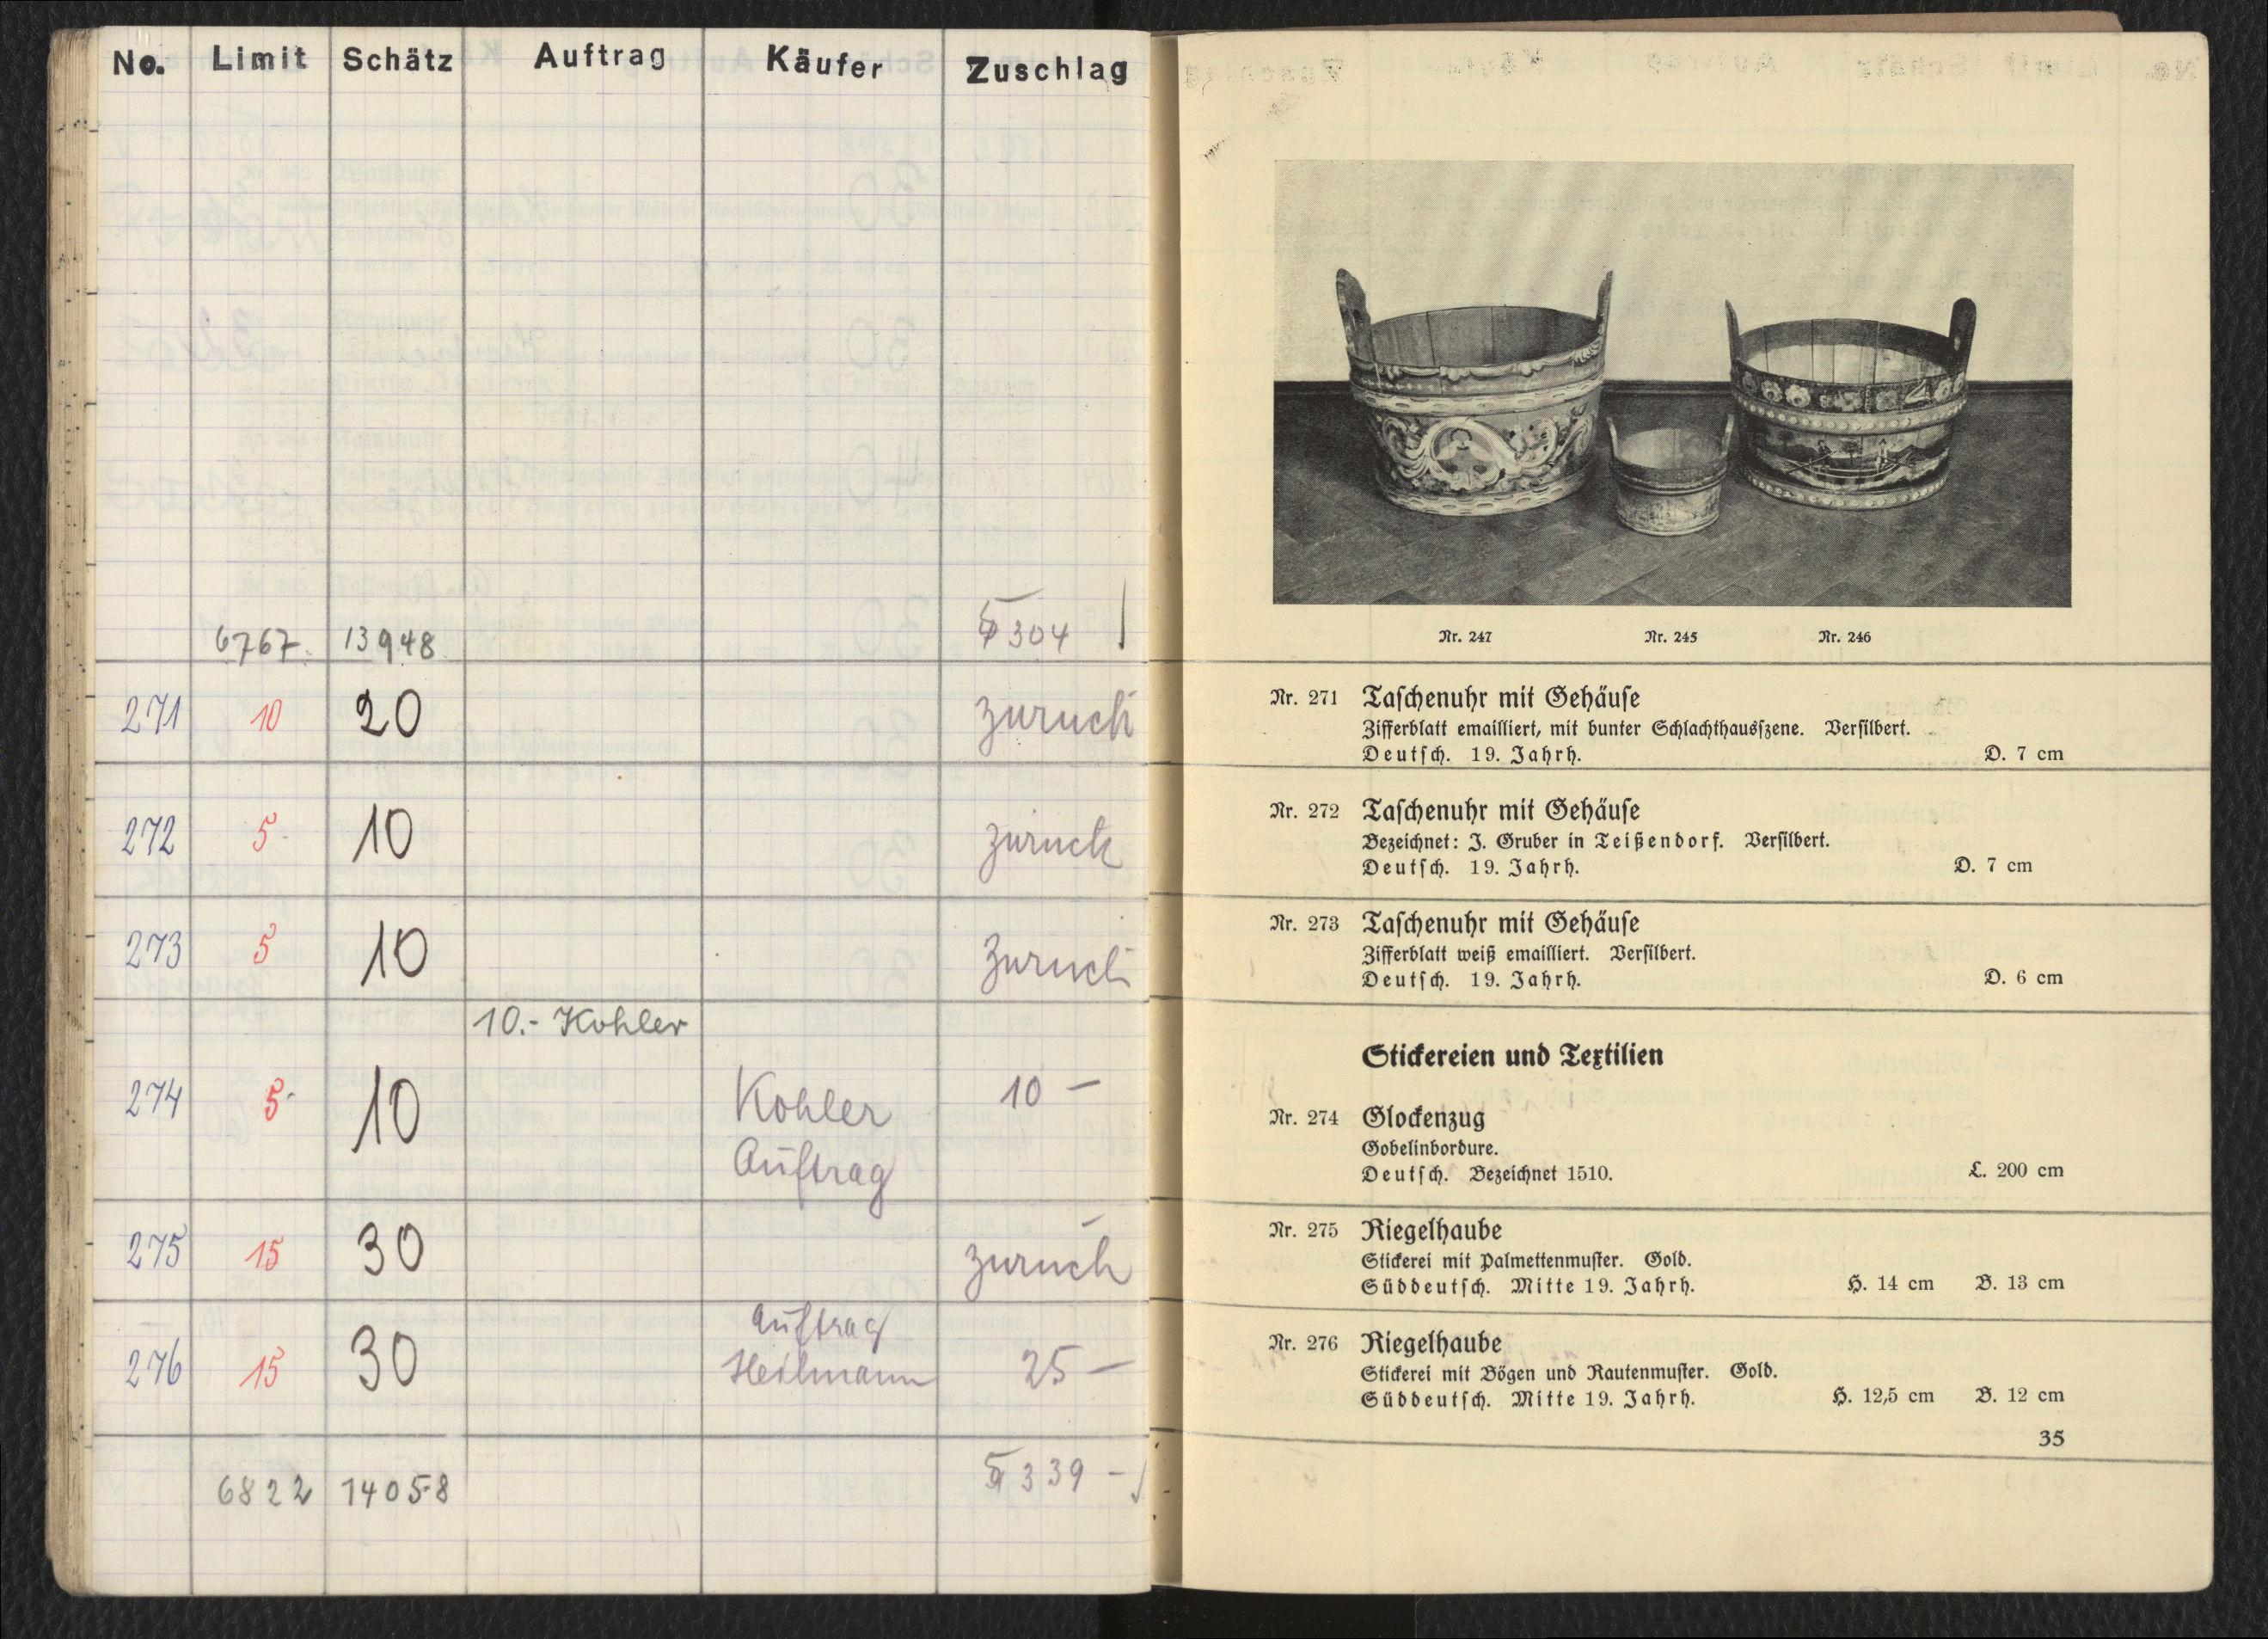 No. Limit Schätz Auftrag Käufer Zuschlag
6767. 13948 5304
271 10 20 zurück
272 5- 10 zurück
273 5 10 zurück
10.- Kohler
274 5- 10 Kohler 10 —
Auftrag
275 15 30 zurück
Auftrag
276 15 30 Heilmann 25 —
6822 14058 5339 —
Nr. 247 Nr. 245 Nr. 246
Nr. 271 Taſchenuhr mit Gehäuſe
Zifferblatt emailliert, mit bunter Schlachthausſzene. Verſilbert.
Deutſch. 19. Jahrh. D. 7 cm
Nr. 272 Taſchenuhr mit Gehäuſe
Bezeichnet: J. Gruber in Teißendorf. Verſilbert.
Deutſch. 19. Jahrh. D. 7 cm
Nr. 273 Taſchenuhr mit Gehäuſe
Zifferblatt weiß emailliert. Verſilbert.
Deutſch. 19. Jahrh. D. 6 cm
Stickereien und Textilien
Nr. 274 Glockenzug
Gobelinbordure.
Deutſch. Bezeichnet 1510. L. 200 cm
Nr. 275 Riegelhaube
Stickerei mit Palmettenmuſter. Gold.
Süddeutſch. Mitte 19. Jahrh. H. 14 cm B. 13 cm
Nr. 276 Riegelhaube
Stickerei mit Bögen und Rautenmuſter. Gold.
Süddeutſch. Mitte 19. Jahrh. H. 12,5 cm B. 12 cm
35